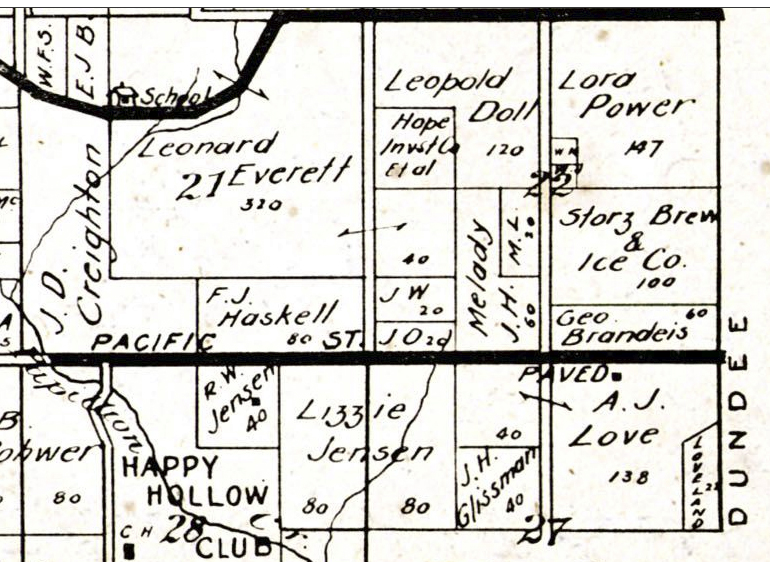 W.F.S.
E.J.B.
School
Leonard
21 Everett
320
J.D.
Creighton
Leopold
Doll
120
Hope
Invst Co
Et al
Lora
Power
147
22
40
Melady
M.L.
20
J.H.
60
Storz Brew
&
Ice Co.
100
F.J.
Haskell
80
J W
20
J O 20
Geo.
Brandeis
60
PACIFIC ST.
PAVED
DUNDEE
R.W.
Jensen
40
Lizzie
Jensen
80
80
40
J.H.
Glissman
40
A.J.
Love
138
LOVELAND
27
HAPPY
HOLLOW
CLUB
28
C H
80